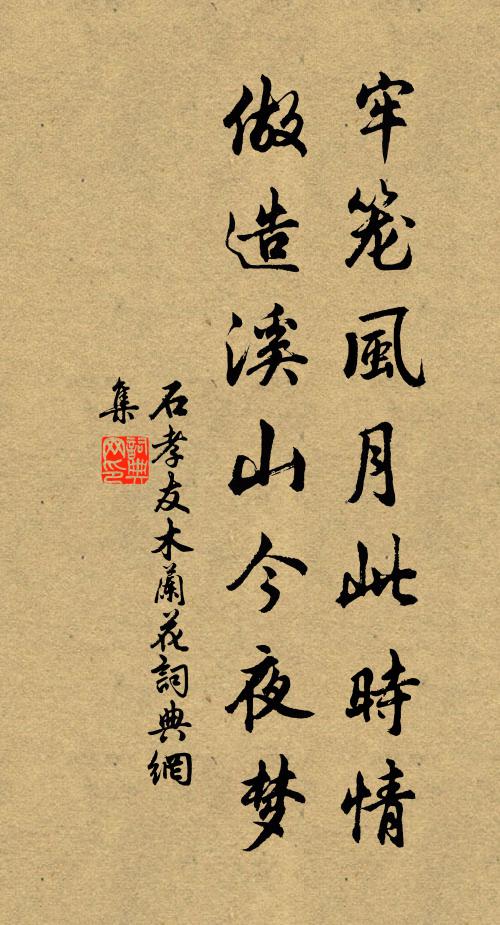 牢笼風月此時情
做造溪山今夜梦
石孝友木蘭花詞典網
集
詞典网印